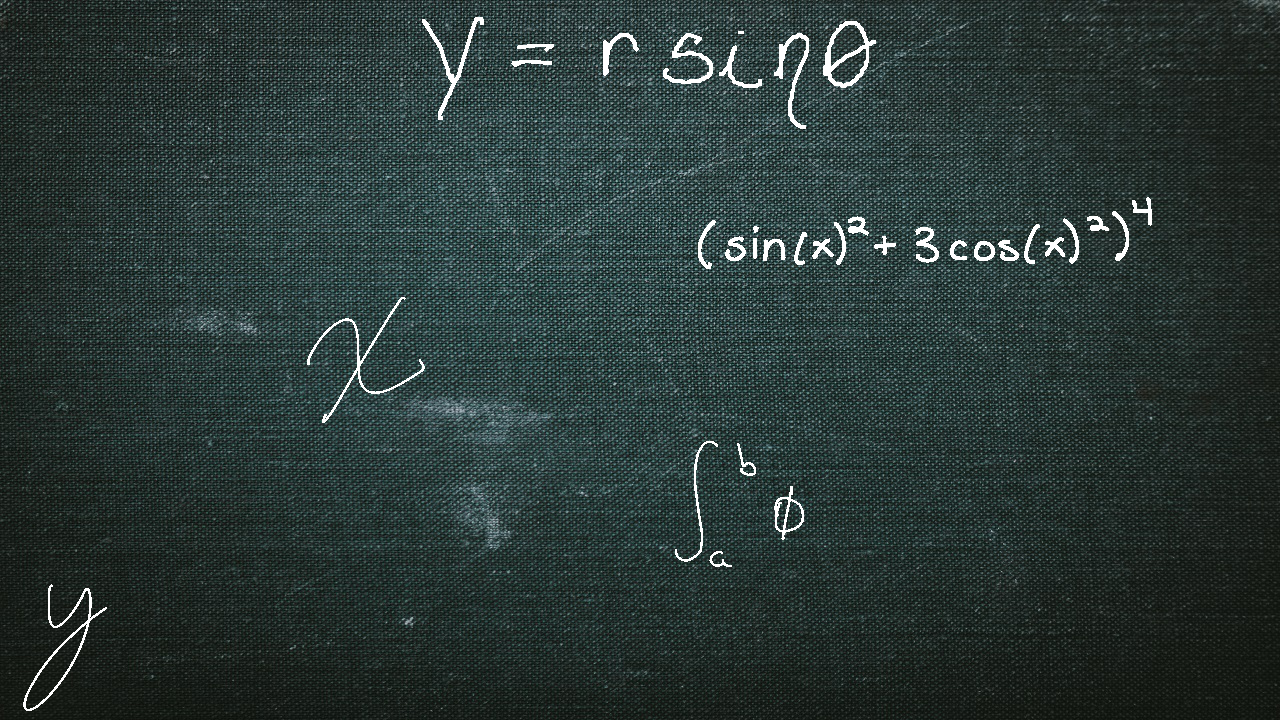 y = r sin θ
(sin(x)² + 3cos(x)²)⁴
x
∫ₐᵇ ϕ
y